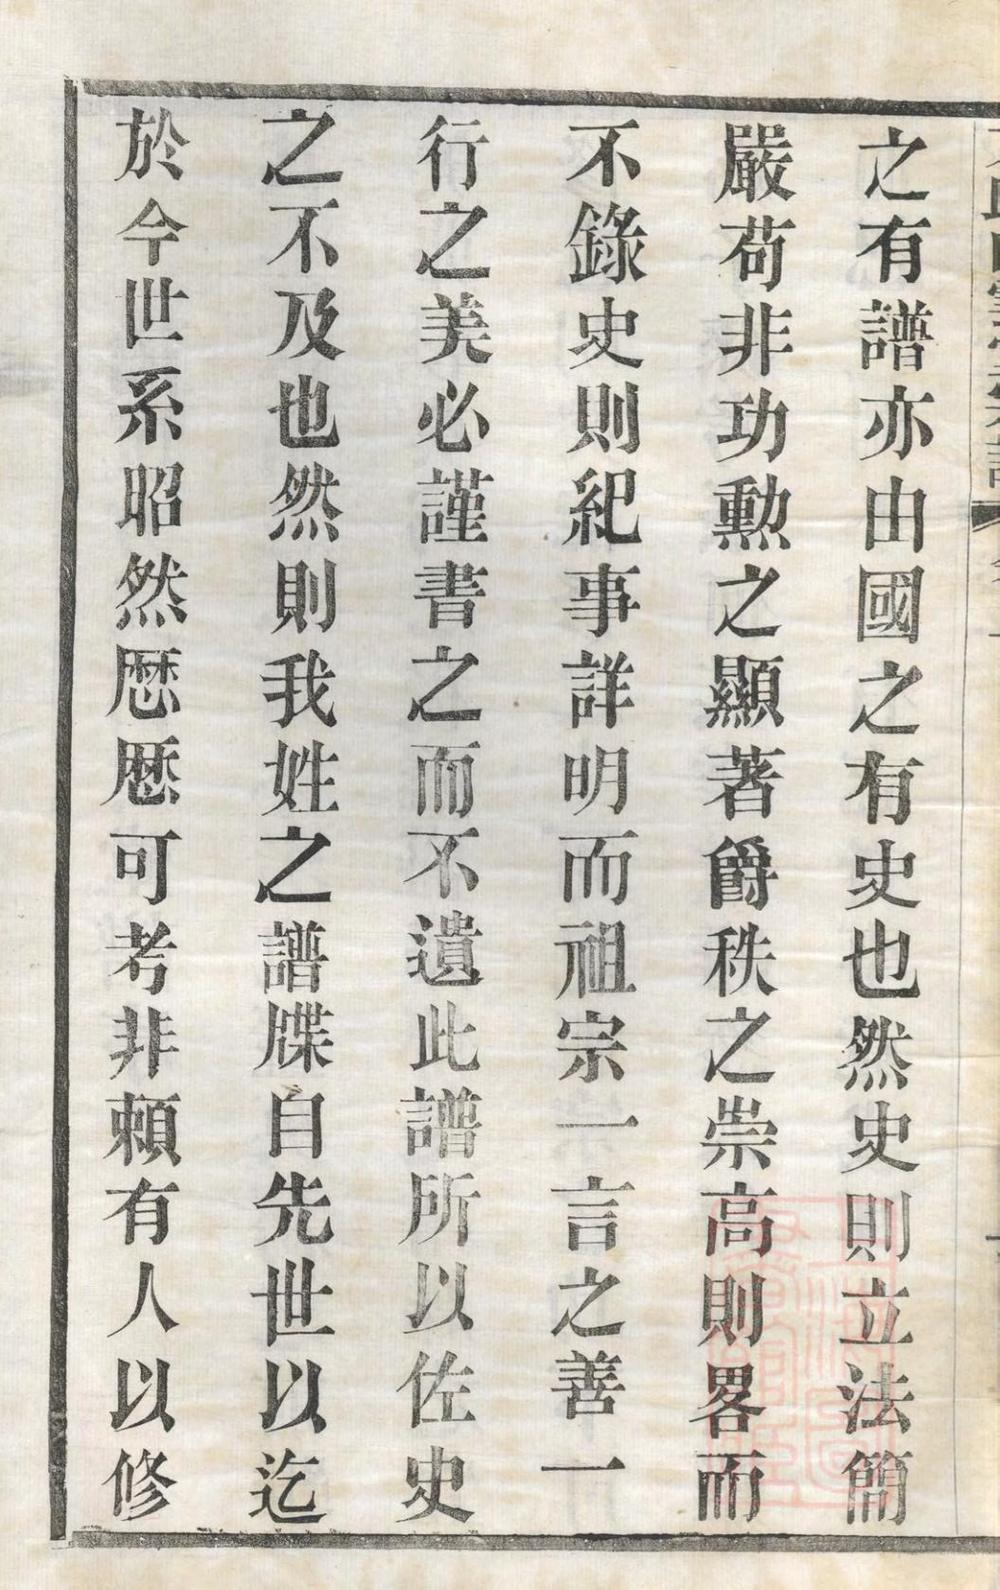 之有譜亦由國之有史也然史則立法簡
嚴苟非功勲之顯著爵秩之崇高則畧而
不錄史則紀事詳明而祖宗一言之善一
行之美必謹書之而不遺此譜所以佐史
之不及也然則我姓之譜牒自先世以迄
於今世系昭然厯厯可考非賴有人以修